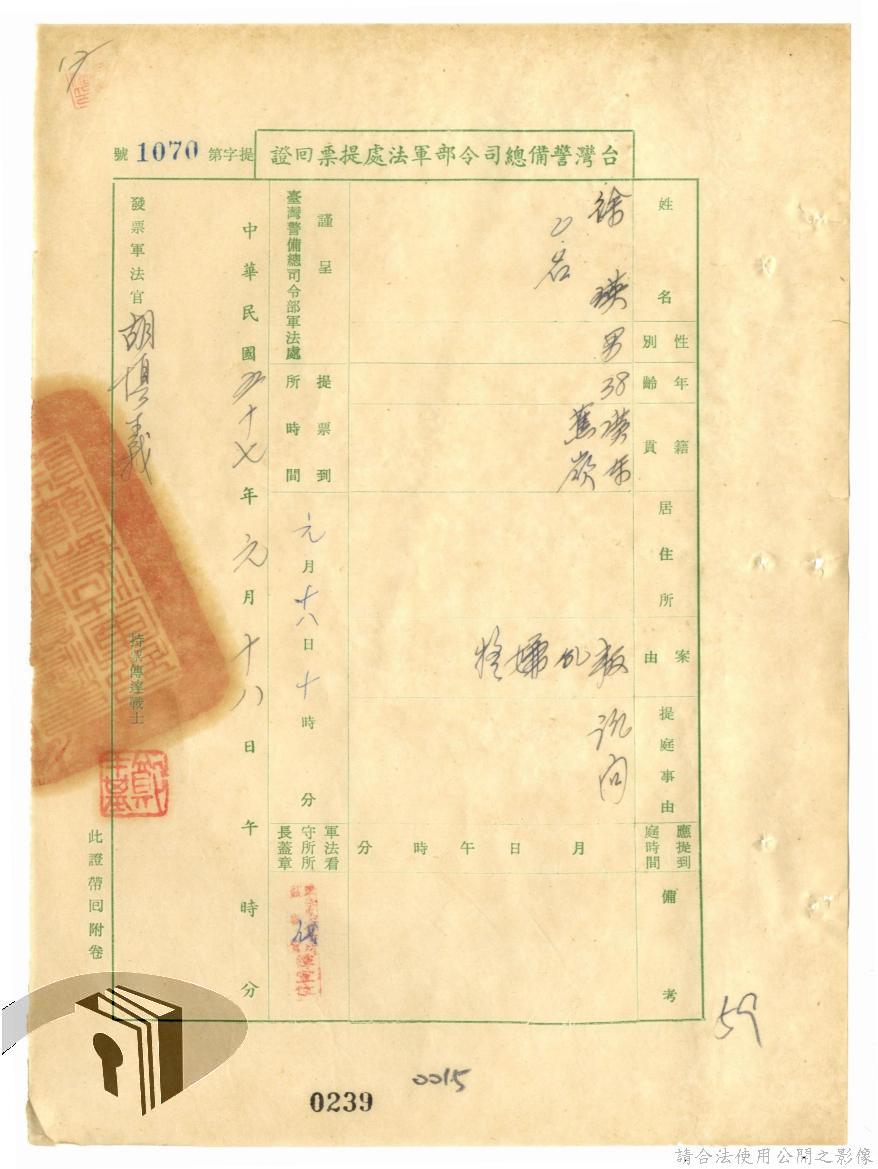 台灣警備總司令部軍法處提票回證
提字第 1070 號
姓名
徐瑛
以名
性別
男
年齡
38
籍貫
蕉嶺
居住所
案由
叛亂嫌
提庭事由
訊問
應提到庭時間
月 日 午 時 分
備考
謹呈
臺灣警備總司令部軍法處
提票到所時間
元月十八日十時 分
軍法看守所所長蓋章
中華民國五十七年元月十八日 午 時 分
發票軍法官
胡填義
持票傳達戰士
此證帶回附卷
59
0015
0239
請合法使用公開之影像